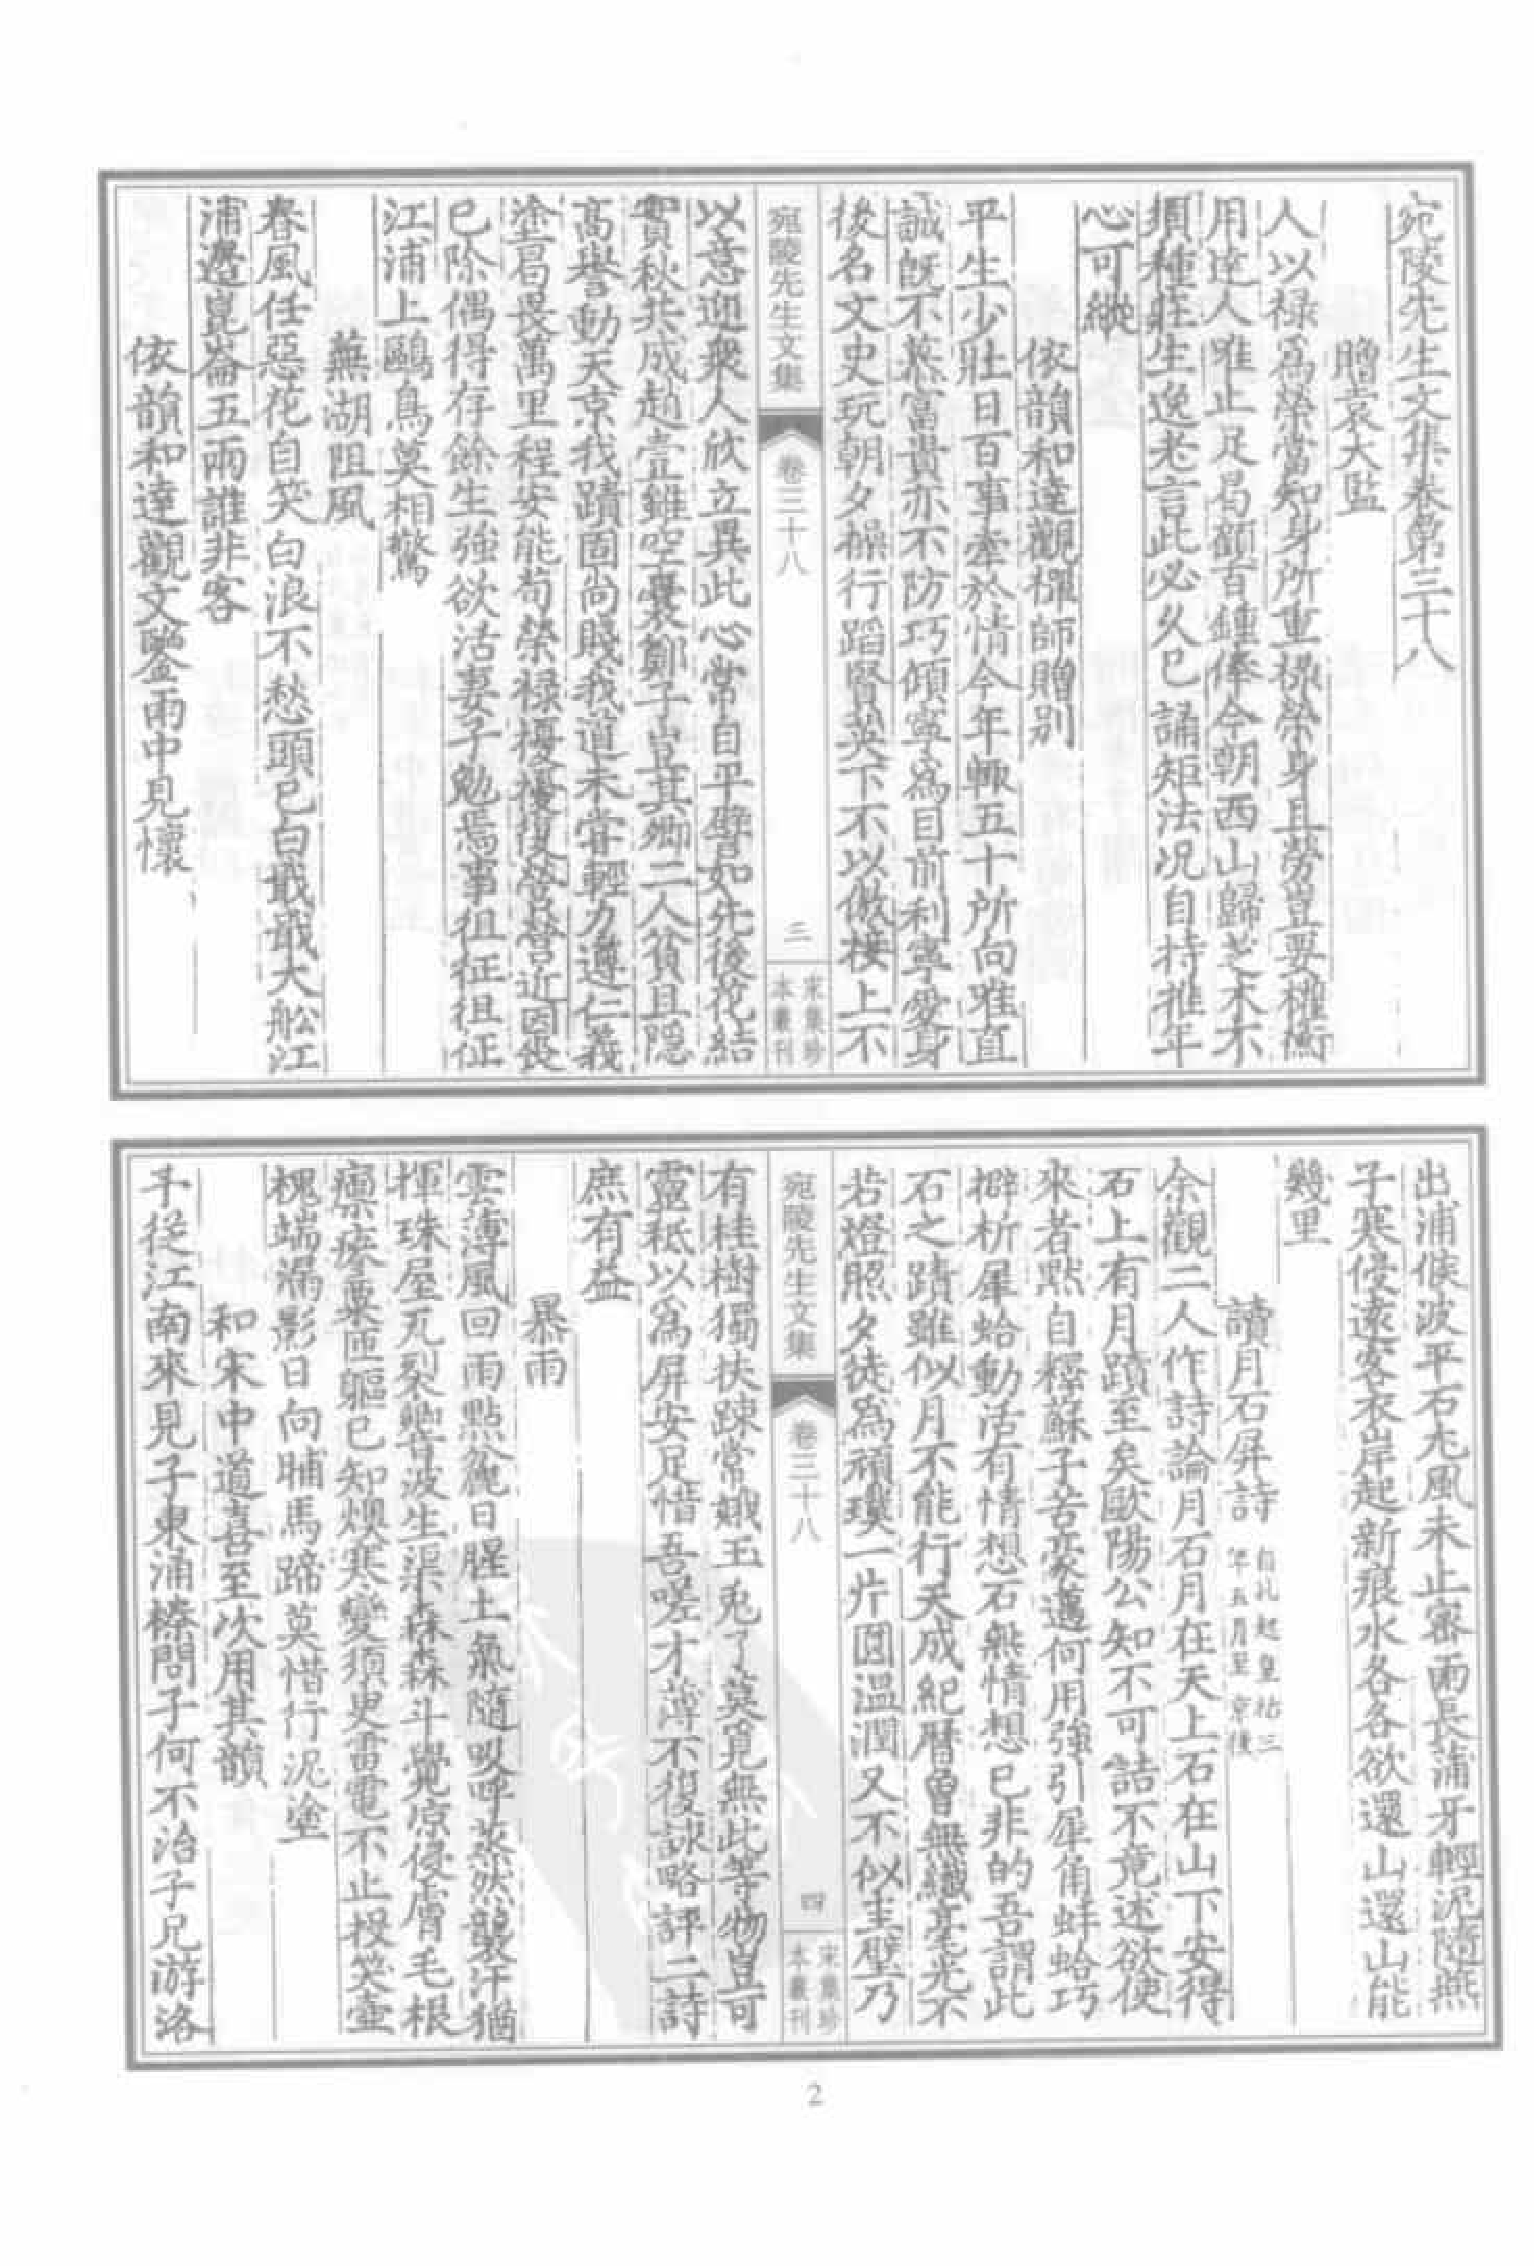 宛陵先生文集卷第三十八
贈袁大監
人以禄爲榮當知身所重操榮身且勞豈要權衡
用達人唯止足曷顧百鍾俸今朝西山歸芝木不
須種莊生逸老言此必久已誦矩法况自持推年
心可縱
依韻和達觀禪師贈别
平生少壯日百事牽於情今年輙五十所向唯直
誠旣不慕富貴亦不防巧傾寧爲目前利寧愛身
後名文史玩朝夕操行蹈賢英下不以傲接上不
宛陵先生文集
卷三十八
三
宋集珍
本叢刊
以意迎衆人欣立異此心常自平譬如先後花結
實秋共成趙壹雖空囊鄭子豈其卿二人貧且隱
高譽動天京我蹟固尚賤我道未甞輕力遵仁義
塗曷畏萬里程安能苟榮禄擾擾復營營近因喪
已除偶得存餘生強欲活妻子勉焉事徂征徂征
江浦上鷗鳥莫相驚
蕪湖阻風
春風任惡花自笑白浪不愁頭已白㝡㝡大舩江
浦邊崑崙五兩誰非客
依韻和達觀文鑒雨中見懷
出浦候波平石尤風未止密雨長蒲牙輕泥隨燕
子寒侵遠客衣岸起新痕水各各欲還山還山能
幾里
讀月石屏詩
自此起皇祐三
年五月至京後
余觀二人作詩論月石月在天上石在山下安得
石上有月蹟至矣歐陽公知不可詰不竟述欲使
來者黙自釋蘇子苦豪邁何用強引犀角蚌蛤巧
擗析犀蛤動活有情想石無情想已非的吾謂此
石之蹟雖似月不能行天成紀曆曽無纎毫光不
若燈照夕徒爲頑璞一片圓温潤又不似圭璧乃
宛陵先生文集
卷三十八
四
宋集珍
本叢刊
有桂樹獨扶踈常娥玉兎了莫覔無此等物豈可
靈秪以爲屏安足惜吾嗟才薄不復詠略評二詩
庶有益
暴雨
雲薄風回雨點麄日腥土氣隨吸呼蒸然龔汗猶
揮珠屋瓦裂響波生渠森森斗覺凉侵膚毛根
癝瘮粟匝軀已知燠寒變須史雷電不止投笑壷
槐端漏影日向晡馬蹄莫惜行泥塗
和宋中道喜至次用其韻
手從江南來見子東浦榛問子何不治子兄游洛
2